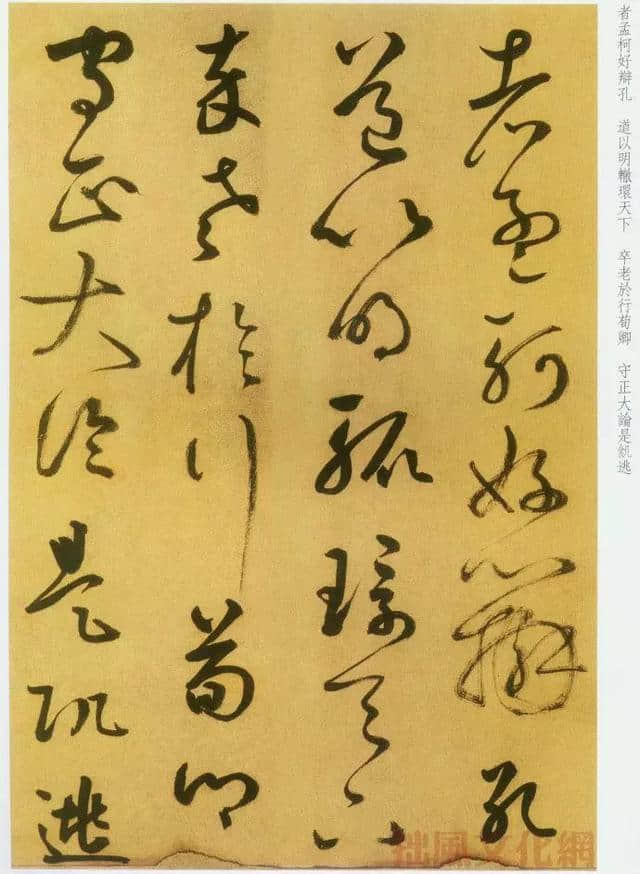 者孟軻好辯孔
道以明轍環天下
卒老於行荀卿
守正大論是飢逃
者孟柯好辯孔 道以明轍環天下 卒老於行荀卿 守正大論是飢逃
拙風文化網